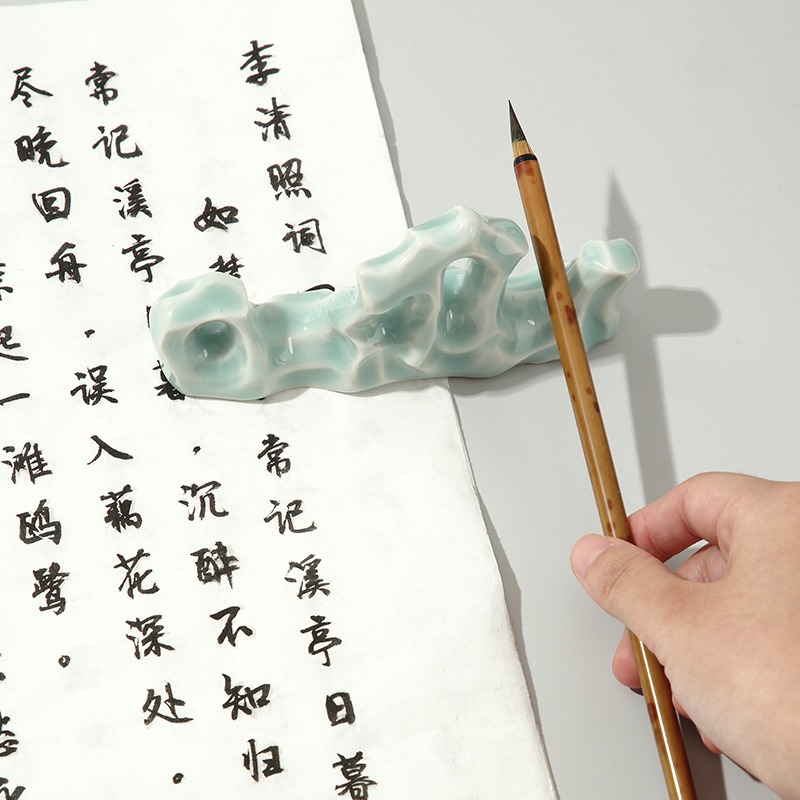 李清照词
如梦 常记溪亭日暮
常记溪亭 暮，沉醉不知归
尽晚回舟，误入藕花深处。
起一滩鸥鹭。